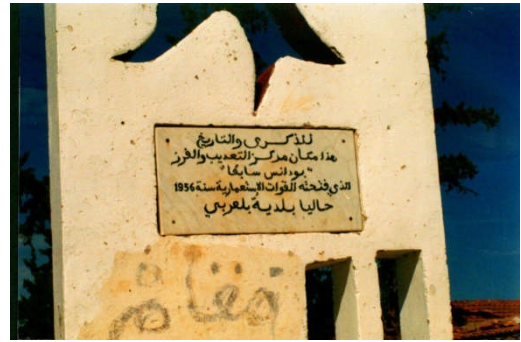 للذكرى والتاريخ
هذا مكان مركز التعذيب والفرز
"بودانس سابقا"
الذي فتحته القوات الاستعمارية سنة 1956
حاليا بلدية بلعربي